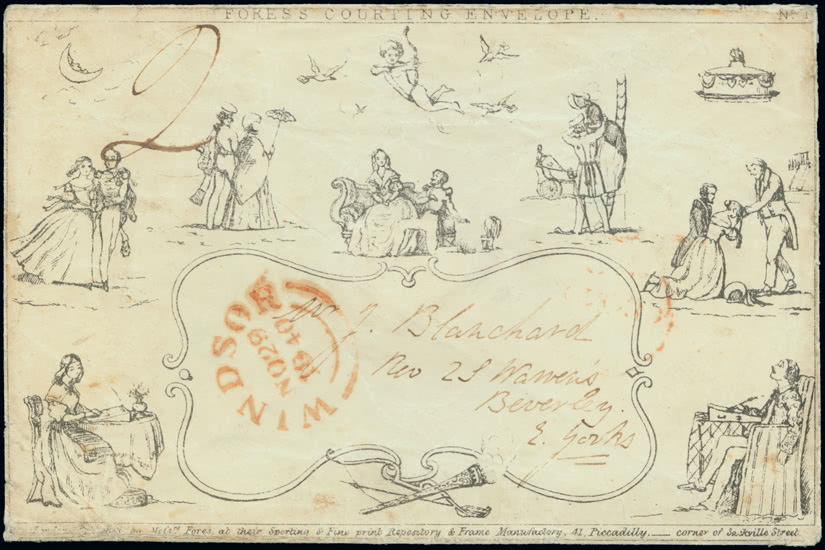 FORES'S COURTING ENVELOPE.
Nº 1
WINDSOR
NO 29
1840
Mr J. Blanchard
Rev J S Warren's
Beverley.
E. Yorks
Messrs Fores, at their Sporting & Fine print Repository & Frame Manufactory, 41, Piccadilly, corner of Sackville Street